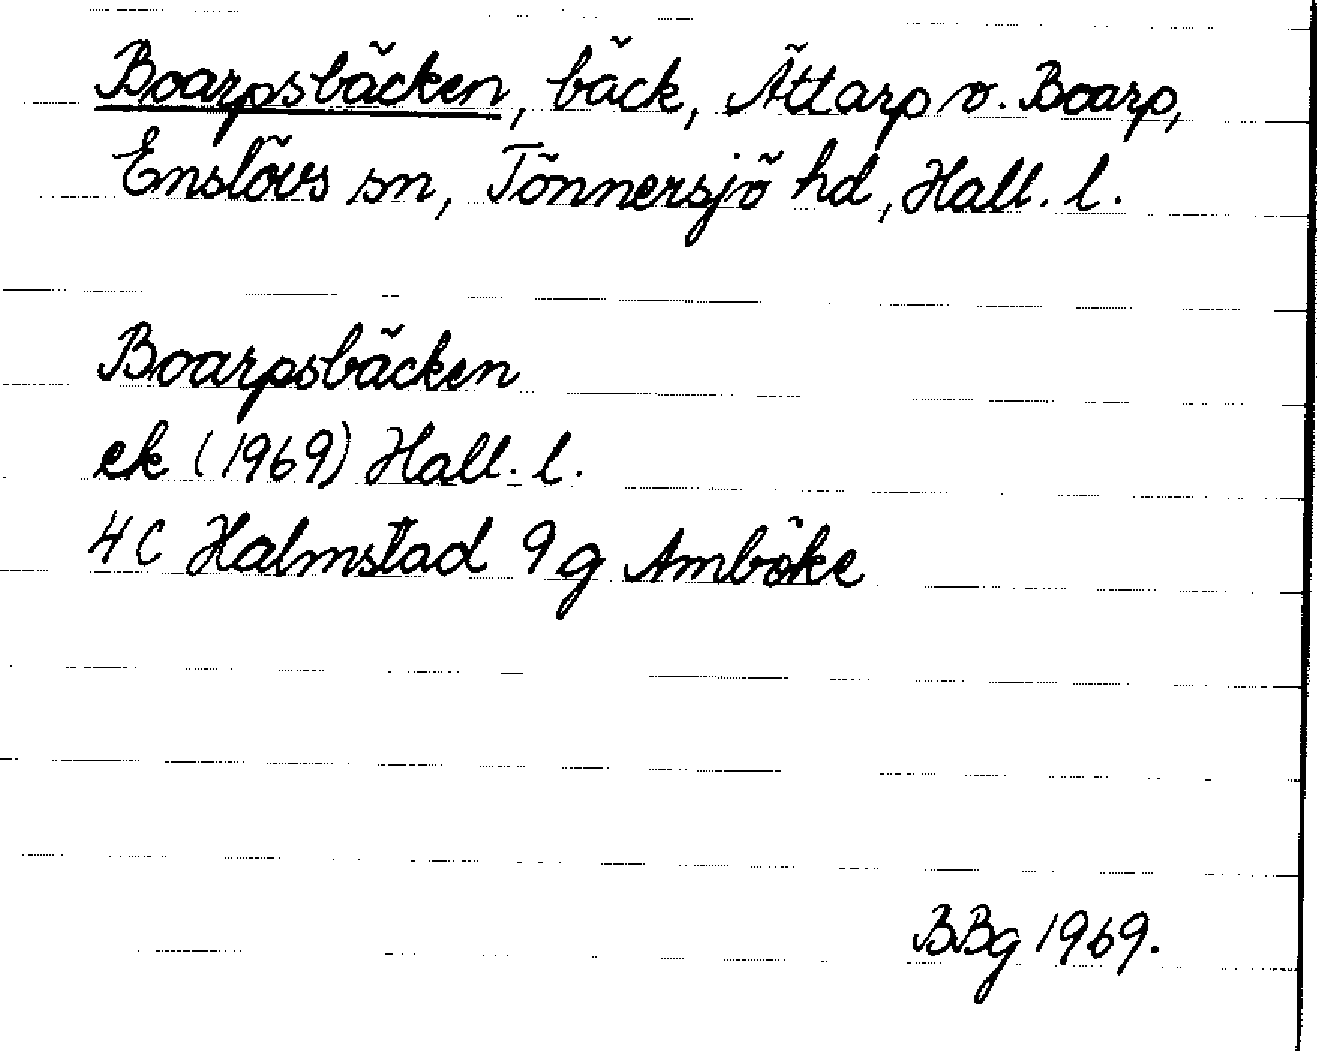 Boarpsbäcken, bäck, Ättarp o. Boarp,
Enslövs sn, Tönnersjö hd, Hall. l.
Boarpsbäcken
ek (1969) Hall. l.
4 C Halmstad 9 g Amböke
BBg 1969.